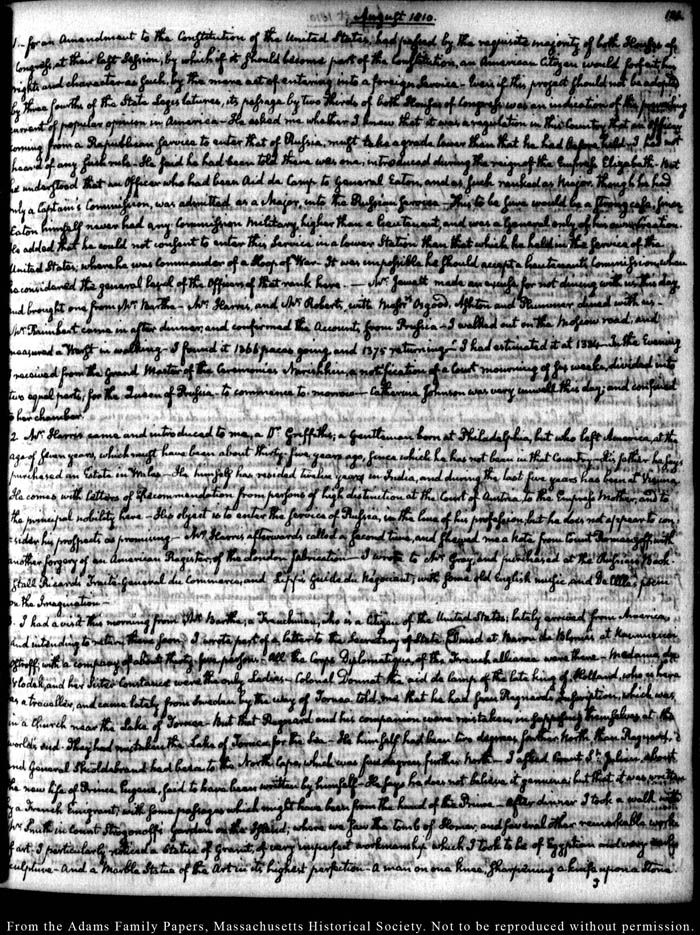 August 1810.
1. for an Amendment to the Constitution of the United States, had passed by the requisite majority of both Houses of
Congress, at their last Session, by which if it should become part of the Constitution, an American Citizen would forfeit his
rights and character as such, by the mere act of entering into a foreign Service. Even if this project should not be adopted
by three fourths of the State Legislatures, its passage by two thirds of both Houses of Congress was an indication of the prevailing
current of popular opinion in America. He asked me whether I knew that it was a regulation in this Country that an Officer
coming from a Republican Service to enter that of Russia, must take a grade lower than that he had before held. I had not
heard of any such rule. He said he had been told there was one, introduced during the reign of the Empress Elizabeth. But
he understood that an Officer who had been Aid de Camp to General Eaton, and as such ranked as Major, though he had
only a Captain's Commission, was admitted as a Major, into the Russian Service. This to be sure would be a strong case, since
Eaton himself never had any Commission Military, higher than a lieutenant, and was a General only of his own creation.
He added that he could not consent to enter this Service in a lower Station than that which he held in the Service of the
United States, where he was Commander of a Sloop of War. It was impossible he should accept a lieutenants Commission, when
he considered the general of the Officers of that rank here. — Mr. Jewett made an excuse for not dining with us this day,
and brought one from Mr. Martha. Mr. Harris, and Mr. Roberts, with Messrs. Osgood, Ashton and Plummer dined with us.
Mr. Raimbert came in after dinner, and confirmed the Accounts, from Prussia. I walked out on the Moscow road, and
measured a Werst in walking. I found it 1366 paces going, and 1375 returning. I had estimated it at 1384. In the Evening
I received from the Grand Master of the Ceremonies Narishkin, a notification of a Court mourning of six weeks, divided into
two equal parts, for the Queen of Prussia. to commence to-morrow. Catherine Johnson was very unwell this day; and confined
to her chamber.
2. Mr. Harris came and introduced to me, a Dr. Griffiths; a Gentleman born at Philadelphia, but who left America, at the
age of seven years, which must have been about thirty-five years ago, since which he has not been in that Country. His father he says
purchased an Estate in Wales. He himself has resided twelve years in India, and during the last five years has been at Vienna.
He comes with letters of Recommendation from persons of high distinction at the Court of Austria to the Empress Mother, and to
the principal nobility here. His object is to enter the Service of Russia, in the line of his profession, but he does not appear to con-
sider his prospects as promising. Mr. Harris afterwards called a second time, and shewed me a Note from Count Romanzoff with
another forgery of an American Register, of the London fabrication. I wrote to Mr. Gray, and purchased at the Russian Book-
Stall Ricards Traité General du Commerce, and Guide du Negociant; with some old English music, and Delille's poem
on the Imagination.
3. I had a visit this morning from Mr. Martha; a Frenchman, who is a Citizen of the United States; lately arrived from America
and intending to return there soon. I wrote part of a letter to the Secretary of State. Dined at Baron de Blomes at Kammenoi
Ostroff; with a company of about thirty-five persons. All the Corps Diplomatique of the French alliance were there. Madame de
Vlodek, and her Sister Constance were the only Ladies. Colonel Donnat the aid de Camp of the late King of Holland, who is here
as a traveller, and came lately from Sweden by the way of Tornea told me that he had seen Regnard's Inscription, which was
in a church near the Lake of Tornea. But that Regnard and his companion were mistaken, in supposing themselves at the
world's end. They had mistaken the Lake of Tornea for the Sea. He himself had been two degrees farther North than Regnard;
and General Skioldebrand had been to the North Cape, which was five degrees further North. I asked Count St. Julien, about
the new life of Prince Eugene, said to have been written by himself. He says he does not believe it genuine: but that it was written
by a French Emigrant, with some passages which might have been from the hand of the Prince. After dinner I took a walk with
Mr. Smith in Count Strogonoff's Garden on the Island; where we saw the tomb of Homer, and several other remarkable works
of art. I particularly noticed a Statue of Granit, of very imperfect workmanship which I took to be of Egyptian and very early
sculpture. And a Marble Statue of the Art in its highest perfection. A man on one knee, sharpening a knife upon a Stone.
3
From the Adams Family Papers, Massachusetts Historical Society. Not to be reproduced without permission.